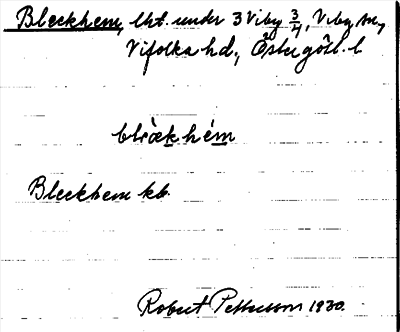 Bleckhem, lht. under 3 Viby 3/4, Viby sn,
Vifolka hd., Östergötl. l.
Bleckhem kb.
Robert Pettersson 1930.